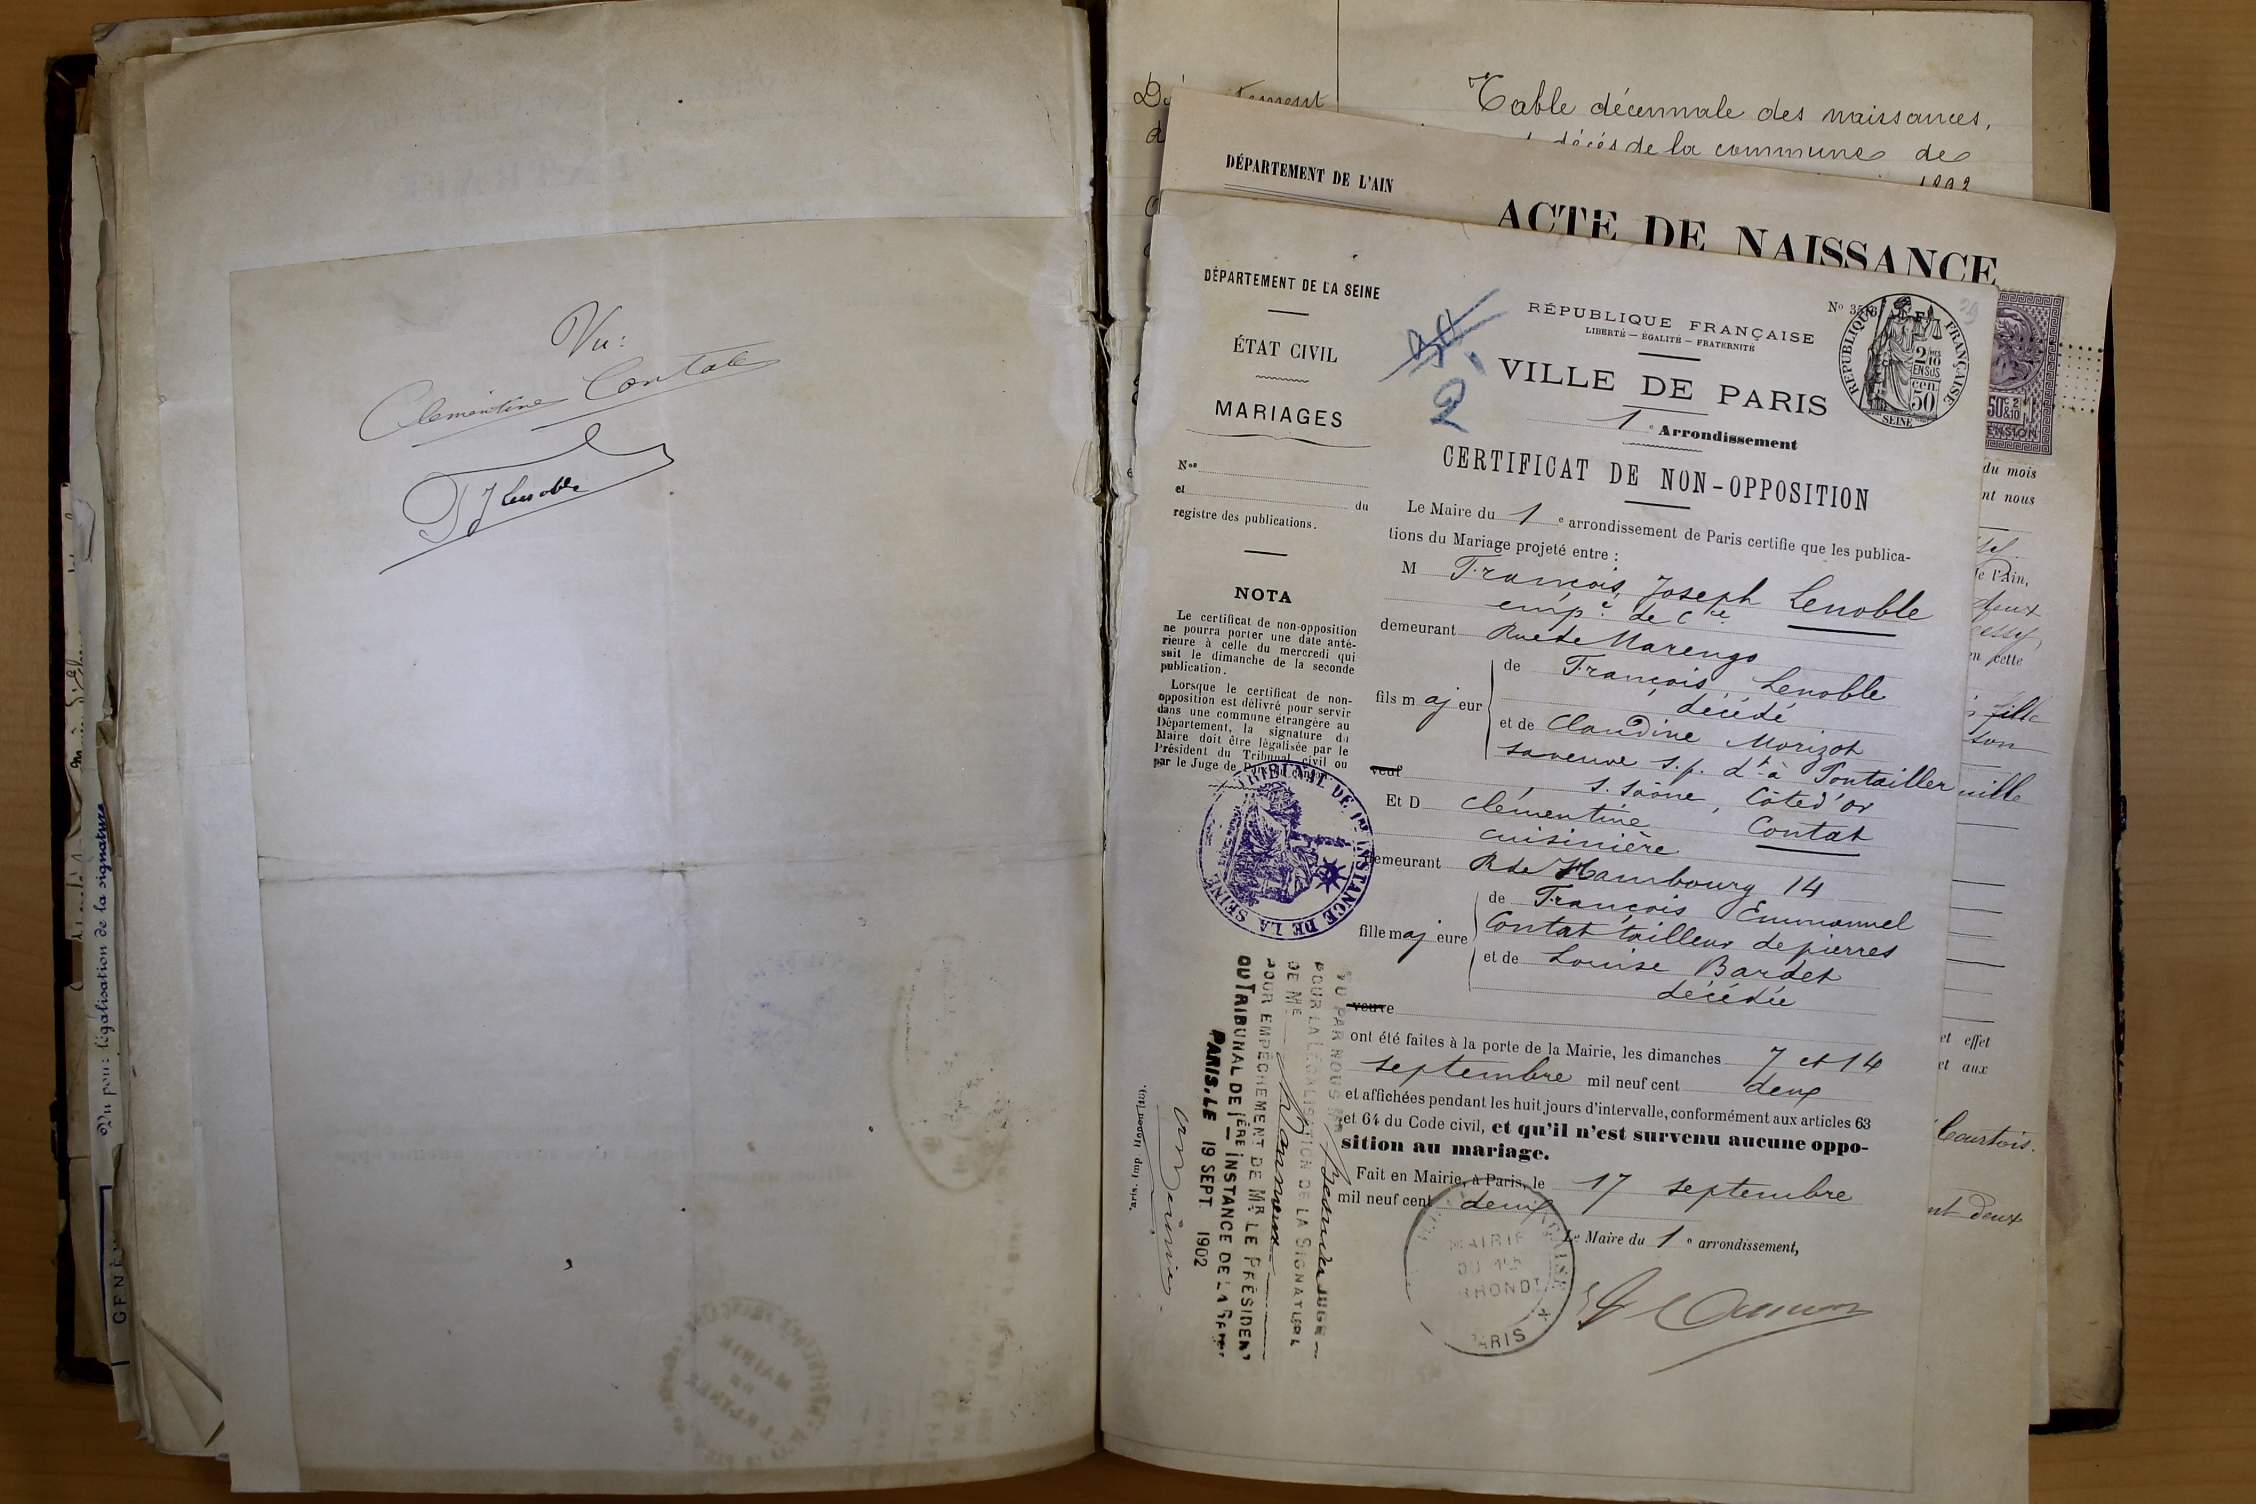 Vu:
Clémentine Contat
FJ Lenoble
Vu pour légalisation de la signature
Table décennale des naissances,
décés de la commune de
DÉPARTEMENT DE L'AIN
ACTE DE NAISSANCE
DÉPARTEMENT DE LA SEINE
ÉTAT CIVIL
MARIAGES
Nos
et du
registre des publications.
NOTA
Le certificat de non-opposition
ne pourra porter une date anté-
rieure à celle du mercredi qui
suit le dimanche de la seconde
publication.
Lorsque le certificat de non-
opposition est délivré pour servir
dans une commune étrangère au
Département, la signature du
Maire doit être légalisée par le
Président du Tribunal civil ou
par le Juge de
2
RÉPUBLIQUE FRANÇAISE
LIBERTÉ — ÉGALITÉ — FRATERNITÉ
VILLE DE PARIS
1e Arrondissement
CERTIFICAT DE NON-OPPOSITION
RÉPUBLIQUE FRANÇAISE
2 MES
10
EN SUS
cen.
50
SEINE
Le Maire du 1e arrondissement de Paris certifie que les publica-
tions du Mariage projeté entre :
M François, Joseph Lenoble
empé de Cce
demeurant Rue de Marengo
fils majeur
de François Lenoble
décédé
et de Claudine Morizot
sa veuve s.p. dt à Pontailler
veuf s. Saône, Côte d'or
Et D Clémentine Contat
cuisinière
demeurant R de Hambourg 14
fille majeure
de François Emmanuel
Contat tailleur de pierres
et de Louise Bardet
décédée
veuve
ont été faites à la porte de la Mairie, les dimanches 7 et 14
septembre mil neuf cent deux
et affichées pendant les huit jours d'intervalle, conformément aux articles 63
et 64 du Code civil, et qu'il n'est survenu aucune oppo-
sition au mariage.
Fait en Mairie, à Paris, le 17 septembre
mil neuf cent deux
Le Maire du 1e arrondissement,
MAIRIE
DU 1er
PARIS
TRIBUNAL DE 1RE INSTANCE DE LA SEINE
VU PAR NOUS MR JUGE
POUR LA LEGALISATION DE LA SIGNATURE
DE ME
POUR EMPÊCHEMENT DE MR LE PRÉSIDENT
DU TRIBUNAL DE 1ÈRE INSTANCE DE LA SEINE
PARIS, LE 19 SEPT. 1902
du mois
nt nous
de l'Ain,
en cette
fille
son
et effet
et aux
Courtois.
nt deux